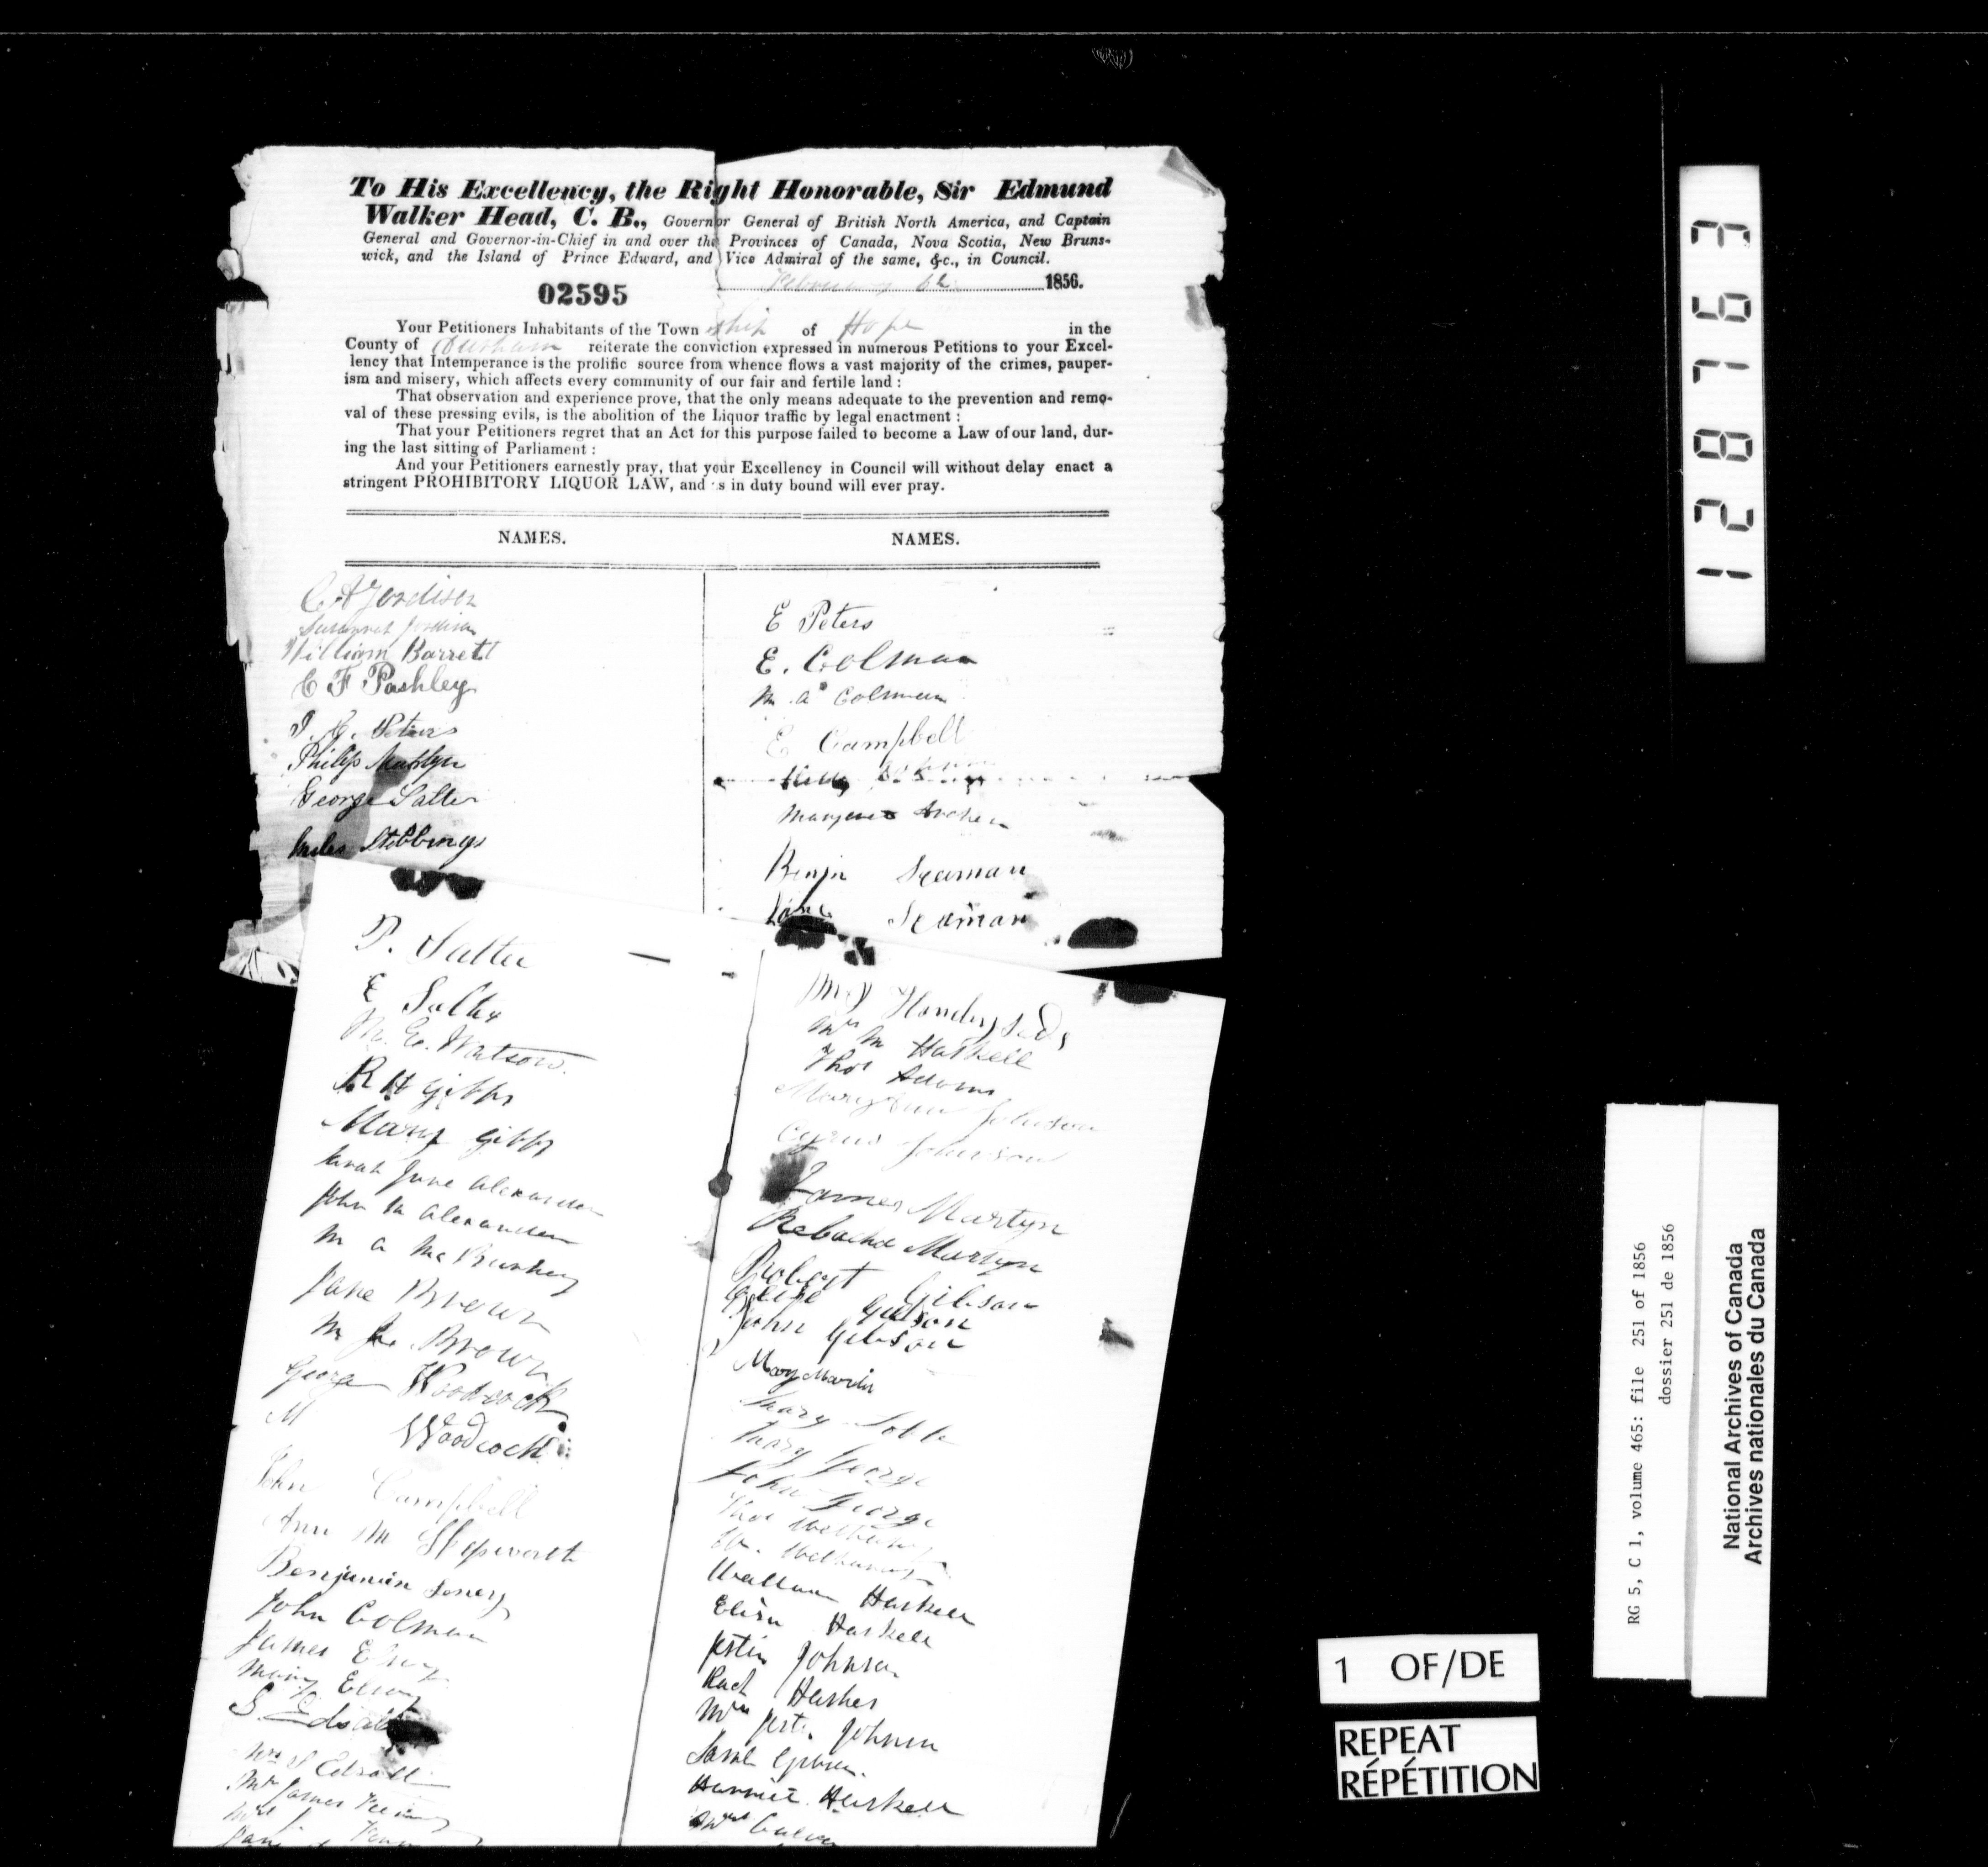 To His Excellency, the Right Honorable, Sir Edmund
Walker Head, C. B., Governor General of British North America, and Captain
General and Governor-in-Chief in and over the Provinces of Canada, Nova Scotia, New Bruns-
wick, and the Island of Prince Edward, and Vice Admiral of the same, &c., in Council.
February 1856.
02595
Your Petitioners Inhabitants of the Town ship of Hope in the
County of Durham reiterate the conviction expressed in numerous Petitions to your Excel-
lency that Intemperance is the prolific source from whence flows a vast majority of the crimes, pauper-
ism and misery, which affects every community of our fair and fertile land :
That observation and experience prove, that the only means adequate to the prevention and remo-
val of these pressing evils, is the abolition of the Liquor traffic by legal enactment :
That your Petitioners regret that an Act for this purpose failed to become a Law of our land, dur-
ing the last sitting of Parliament :
And your Petitioners earnestly pray, that your Excellency in Council will without delay enact a
stringent PROHIBITORY LIQUOR LAW, and s in duty bound will ever pray.
NAMES.
C A Jordison
Susannah Jordison
William Barrett
C F Pashley
Peters
Philip Martyn
George Salter
Stebbings
P. Salter
E Salter
M. E. Watson
R H Gibbs
Mary Gibbs
Sarah Jane Alexander
John M Alexander
M a Mc
Jane Brown
M J. Brown
George Woodcock
M Woodcock
John Campbell
Ann M Hepworth
Benjamin
John Colman
James
Mary
S. Edsall
Mrs S Edsall
Mr James
Mrs J.
NAMES.
E Peters
E. Colman
M. a Colman
E Campbell
Margaret
Benjn Seaman
Jane Seaman
Mrs M Haskell
Thos Adams
Mary Ann Johnson
Cyrus Johnson
James Martyn
Rebacha Martyn
Robert Gibson
Gibson
John Gibson
Mary Martin
Mary
Mary George
John George
Thos
Wm.
William Haskell
Eliza Haskell
Justin Johnson
Mrs Johnson
Sarah Gibson.
Harriet Haskell
128763
RG 5, C 1, volume 465: file 251 of 1856
dossier 251 de 1856
National Archives of Canada
Archives nationales du Canada
1 OF/DE
REPEAT
RÉPÉTITION